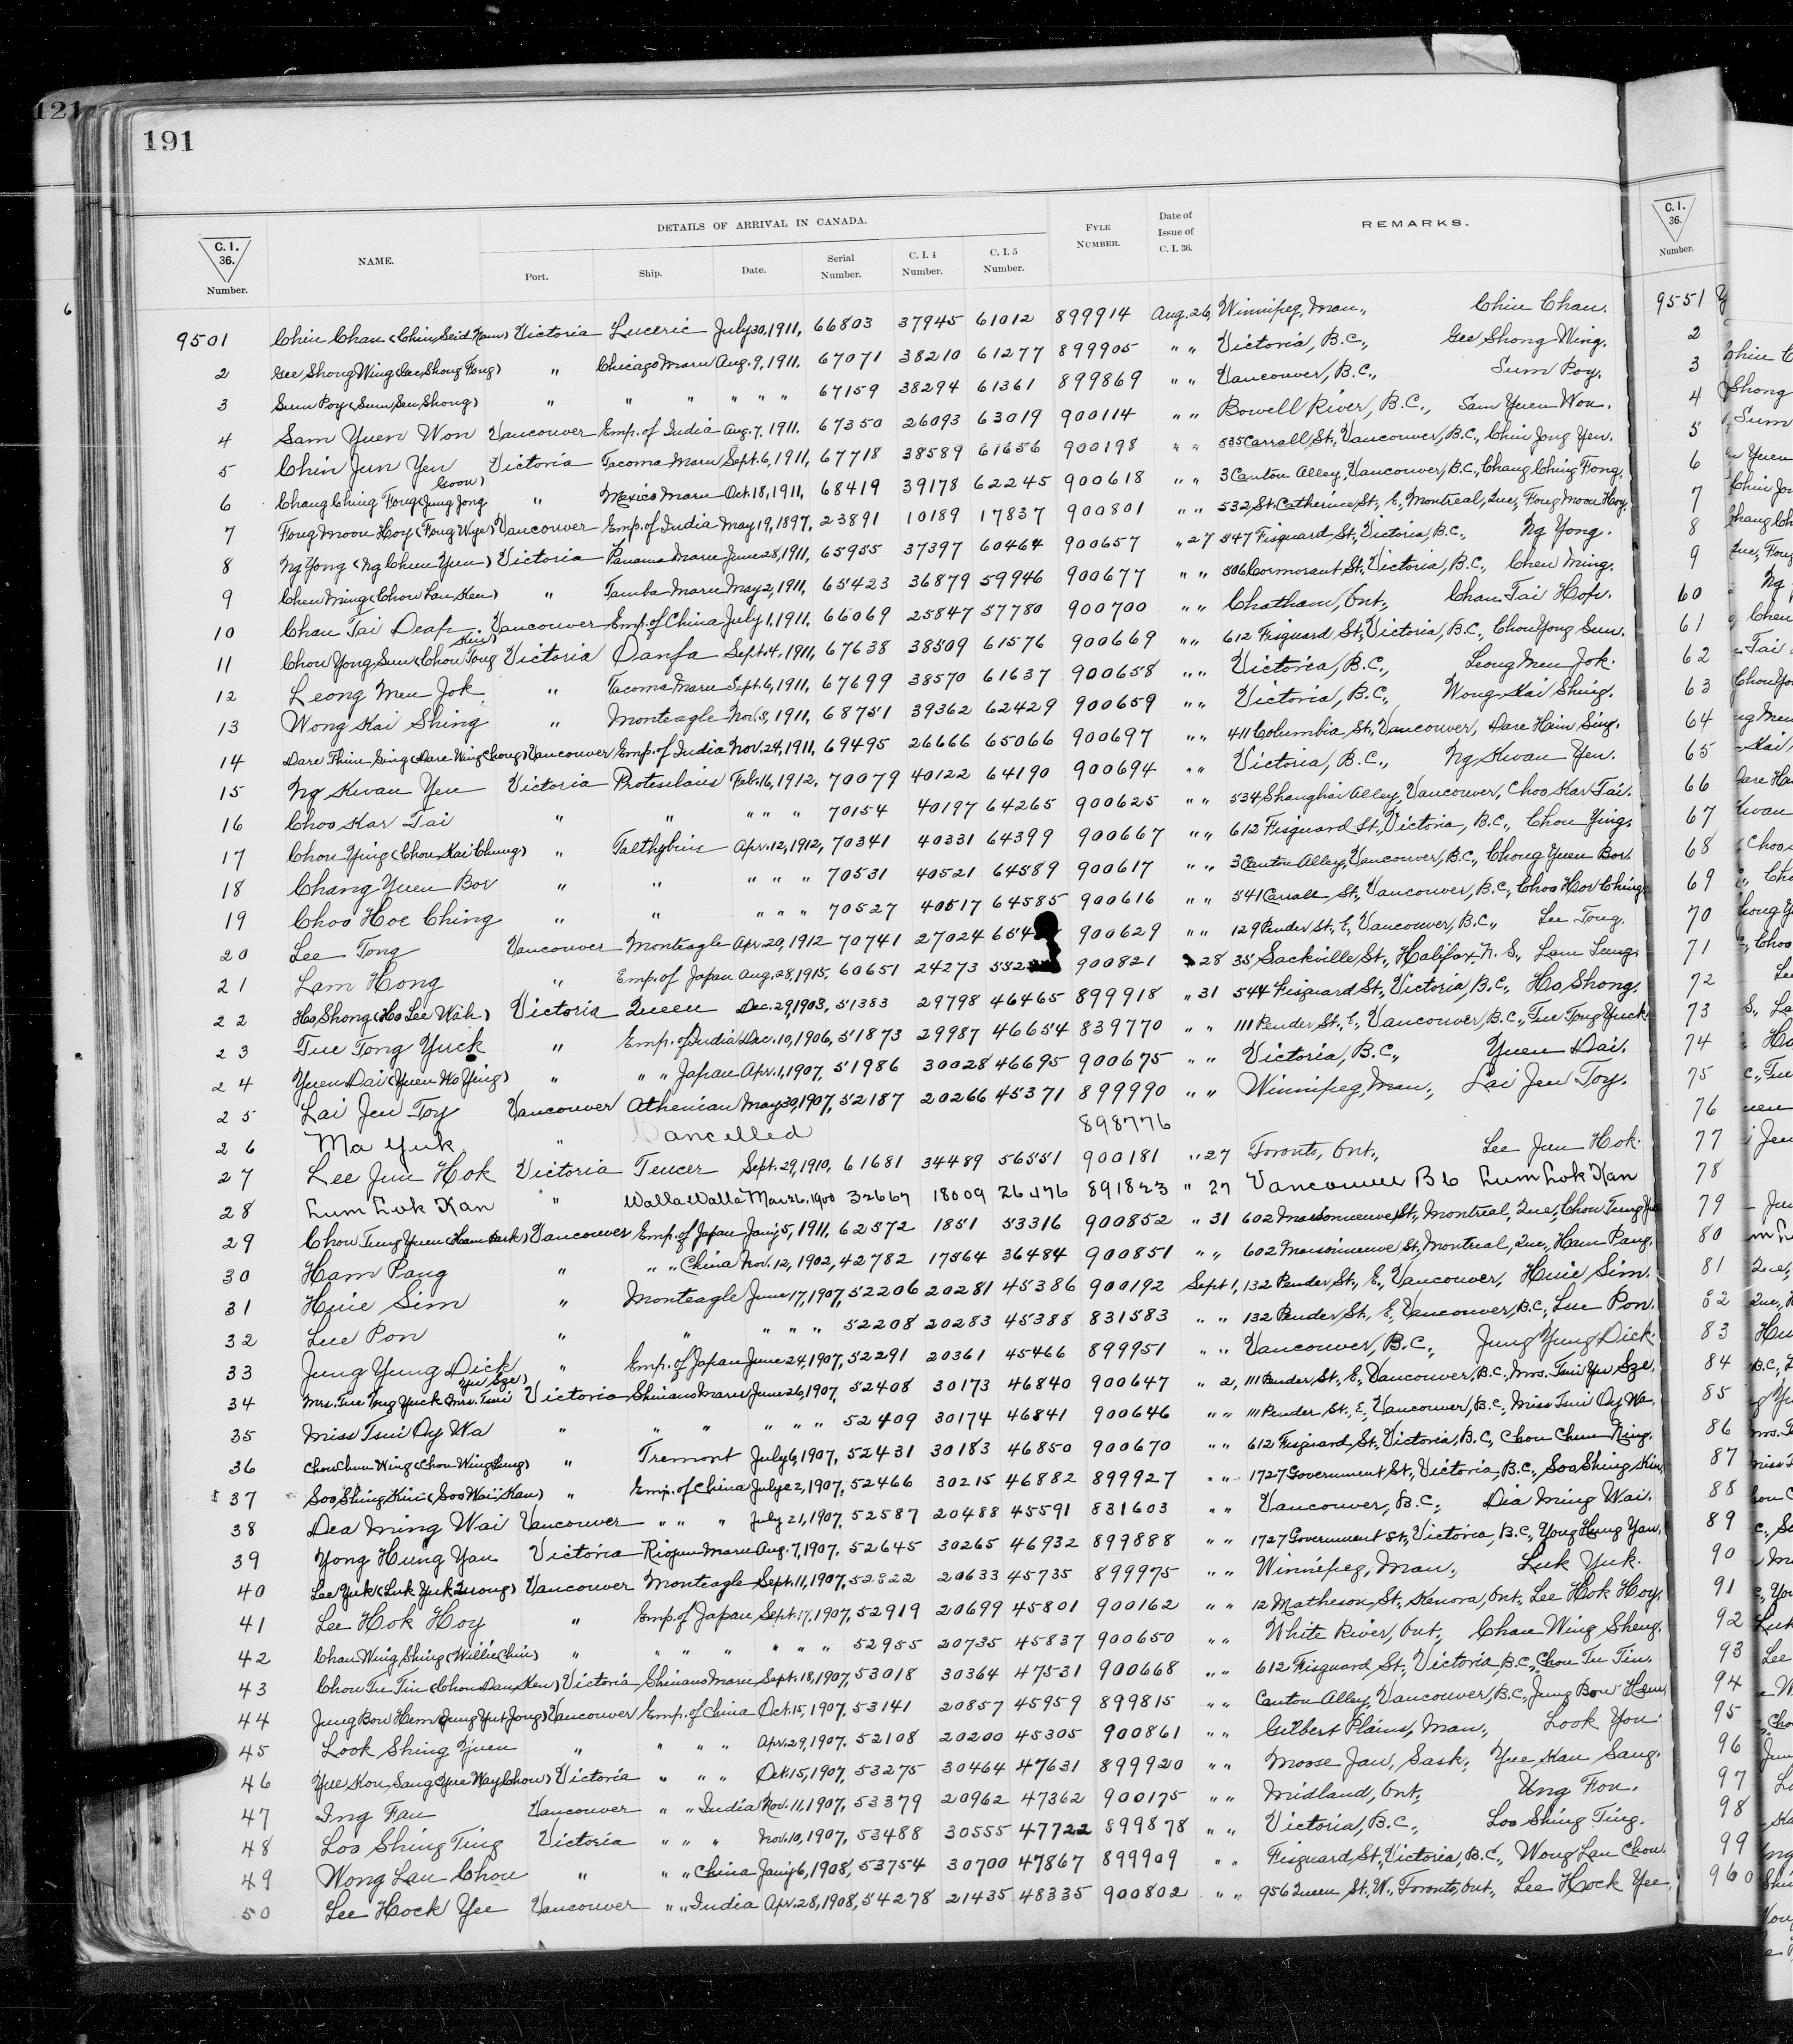 121
191
DETAILS OF ARRIVAL IN CANADA.
C. I. 36. Number. NAME. Port. Ship. Date. Serial Number. C. I. 4 Number. C. I. 5 Number. FYLE NUMBER. Date of Issue of C. I. 36. REMARKS. C. I. 36. Number.
9501 Chin Chan (Chin Seid Nam) Victoria Luceric July 30, 1911, 66803 37945 61012 899914 Aug. 26, Winnipeg, Man., Chin Chan. 9551
2 Gee Shong Wing (Gee Shong Fong) " Chicago Maru Aug. 9, 1911. 67071 38210 61277 899905 " " Victoria, B.C., Gee Shong Wing. 2
3 Sum Poy (Sum Sen Shong) " " " " " " 67159 38294 61361 899869 " " Vancouver, B.C., Sum Poy. 3
4 Sam Yuen Won Vancouver Emp. of India Aug. 7, 1911. 67350 26093 63019 900114 " " Bowell River, B.C., Sam Yuen Won. 4
5 Chin Jun Yen Victoria Tacoma Maru Sept. 6, 1911, 67718 38589 61656 900198 " " 535 Carrall St., Vancouver, B.C., Chin Jong Yen. 5
6 Chang Ching Fong (Jung Jong Coon) " Mexico Maru Oct. 18, 1911, 68419 39178 62245 900618 " " 3 Canton Alley, Vancouver, B.C., Chang Ching Fong. 6
7 Fong Moon Hoy (Fong Wye) Vancouver Emp. of India May 19, 1897. 23891 10189 17837 900801 " " 532 St. Catherine St., E, Montreal, Que., Fong Moon Hoy. 7
8 Ng Yong (Ng Chun Yun) Victoria Panama Maru June 28, 1911, 65955 37397 60464 900657 " 27 547 Fisguard St., Victoria, B.C., Ng Yong. 8
9 Chen Ming (Chow Lan Ken) " Tamba Maru May 2, 1911, 65423 36879 59946 900677 " " 506 Cormorant St., Victoria, B.C., Chen Ming. 9
10 Chan Tai Deap Vancouver Emp. of China July 1, 1911, 66069 25847 57780 900700 " " Chatham, Ont., Chan Tai Hop. 60
11 Chou Yong Sun (Chou Tong Kin) Victoria Oanfa Sept. 4, 1911, 67638 38509 61576 900669 " " 612 Fisguard St., Victoria, B.C., Chou Yong Sun. 61
12 Leong Men Jok " Tacoma Maru Sept. 6, 1911, 67699 38570 61637 900658 " " Victoria, B.C., Leong Men Jok. 62
13 Wong Kai Shing " Monteagle Nov. 5, 1911, 68751 39362 62429 900659 " " Victoria, B.C., Wong Kai Shing. 63
14 Dare Him Sing (Dare Wing Chong) Vancouver Emp. of India Nov. 24, 1911, 69495 26666 65066 900697 " " 411 Columbia St., Vancouver, Dare Haim Sing. 64
15 Ng Kwan Yen Victoria Protesilaus Feb. 16, 1912. 70079 40122 64190 900694 " " Victoria, B.C., Ng Kwan Yen. 65
16 Choo Kar Tai " " " " " 70154 40197 64265 900625 " " 534 Shanghai Alley, Vancouver, Choo Kar Tai. 66
17 Chou Ying (Chou Kai Chung) " Talthybius Apr. 12, 1912, 70341 40331 64399 900667 " " 612 Fisguard St., Victoria, B.C., Chou Ying. 67
18 Chang Yuen Bor " " " " " 70531 40521 64589 900617 " " 3 Canton Alley, Vancouver, B.C., Chong Yuen Bor. 68
19 Choo Hoe Ching " " " " " 70527 40517 64585 900616 " " 541 Carrall St., Vancouver, B.C., Choo Hor Ching 69
20 Lee Tong Vancouver Monteagle Apr. 20, 1912 70741 27024 900629 " " 129 Pender St., E., Vancouver, B.C., Lee Tong. 70
21 Lam Hong " Emp. of Japan Aug. 28, 1915, 60651 24273 900821 " 28 35 Sackville St., Halifax, N. S., Lam Lung. 71
22 Ho Shong (Ho Lee Wah) Victoria Queen Dec. 29, 1903, 51383 29798 46465 899918 " 31 544 Fisguard St., Victoria, B.C., Ho Shong. 72
23 Tue Tong Yuck " Emp. of India Dec. 10, 1906, 51873 29987 46654 839770 " " 111 Pender St., E., Vancouver, B.C., Tue Tong Yuck 73
24 Yuen Dai (Yuen Wo Jing) " " " Japan Apr. 1, 1907, 51986 30028 46695 900675 " " Victoria, B.C., Yuen Dai. 74
25 Lai Jen Toy Vancouver Athenian May 30, 1907, 52187 20266 45371 899990 " " Winnipeg, Man., Lai Jen Toy. 75
26 Ma Yuk " Cancelled 898776 76
27 Lee Jun Hok Victoria Teucer Sept. 29, 1910, 61681 34489 56551 900181 " 27 Toronto, Ont., Lee Jun Hok. 77
28 Lum Lok Kan " Walla Walla Mar 26. 1900 32667 18009 26476 891823 " 27 Vancouver B C Lum Lok Kan 78
29 Chou Tung Yuen (Ham Park) Vancouver Emp. of Japan Jan'y 5, 1911, 62572 1851 53316 900852 " 31 602 Maisonneuve St., Montreal, Que., Chou Tung Yu 79
30 Ham Pang " " " China Nov. 12, 1902, 42782 17564 36484 900851 " " 602 Maisonneuve St., Montreal, Que., Ham Pang. 80
31 Huie Sim " Monteagle June 17, 1907, 52206 20281 45386 900192 Sept 1, 132 Pender St., E., Vancouver, Huie Sim. 81
32 Lue Pon " " " " " 52208 20283 45388 831583 " " 132 Pender St., E., Vancouver, B.C., Lue Pon. 82
33 Jung Yung Dick " Emp. of Japan June 24, 1907, 52291 20361 45466 899951 " " Vancouver, B.C., Jung Yung Dick. 83
34 Mrs. Tue Tong Yuck (Mrs. Tsui Yu Sze) Victoria Shinano Maru June 26, 1907, 52408 30173 46840 900647 " 2, 111 Pender St., E., Vancouver, B.C., Mrs. Tsui Yu Sze. 84
35 Miss Tsui Oy Wa " " " " " " 52409 30174 46841 900646 " " 111 Pender St., E., Vancouver, B.C., Miss Tsui Oy Wa. 85
36 Chou Chun Ning (Chou Wing Lung) " Tremont July 6, 1907, 52431 30183 46850 900670 " " 612 Fisguard St., Victoria, B.C., Chou Chun Ning. 86
37 Soo Shing Kin (Soo Wai Kan) " Emp. of China July 22, 1907, 52466 30215 46882 899927 " " 1727 Government St., Victoria, B.C., Soo Shing Kin 87
38 Dea Ming Wai Vancouver " " " July 21, 1907, 52587 20488 45591 831603 " " Vancouver, B.C., Dia Ming Wai. 88
39 Yong Hung Yan Victoria Riojun Maru Aug. 7, 1907. 52645 30265 46932 899888 " " 1727 Government St., Victoria, B.C., Yong Hung Yan. 89
40 Lee Yuk (Luk Yuk Quong) Vancouver Monteagle Sept. 11, 1907, 52822 20633 45735 899975 " " Winnipeg, Man., Luk Yuk. 90
41 Lee Hok Hoy " Emp. of Japan Sept. 17, 1907, 52919 20699 45801 900162 " " 12 Matheson St., Kenora, Ont., Lee Hok Hoy. 91
42 Chan Wing Shing (Willie Chin) " " " " " " " 52955 20735 45837 900650 " " White River, Ont., Chan Wing Sheng. 92
43 Chou Tu Tin (Chou Dan Ken) Victoria Shinano Maru Sept. 18, 1907, 53018 30364 47531 900668 " " 612 Fisguard St., Victoria, B.C., Chou Tu Tin. 93
44 Jung Bow Hem (Jung Yut Jong) Vancouver Emp. of China Oct. 15, 1907, 53141 20857 45959 899815 " " Canton Alley, Vancouver, B.C., Jung Bow Hem 94
45 Look Shing Yuen " " " " Apr. 29, 1907. 52108 20200 45305 900861 " " Gilbert Plains, Man., Look You. 95
46 Yue Kon Sang (Yue Way Chow) Victoria " " " Oct. 15, 1907, 53275 30464 47631 899920 " " Moose Jaw, Sask., Yue Kau Sang. 96
47 Ing Fau Vancouver " " India Nov. 11, 1907, 53379 20962 47362 900175 " " Midland, Ont., Ung Fou. 97
48 Loo Shing Ting Victoria " " " Nov. 10, 1907, 53488 30555 47722 899878 " " Victoria, B.C., Loo Shing Ting. 98
49 Wong Lau Chou " " " China Jan'y 6, 1908, 53754 30700 47867 899909 " " Fisguard St., Victoria, B.C., Wong Lau Chou. 99
50 Lee Hock Yee Vancouver " " India Apr. 28, 1908, 54278 21435 48335 900802 " " 956 Queen St., W., Toronto, Ont., Lee Hock Yee. 960